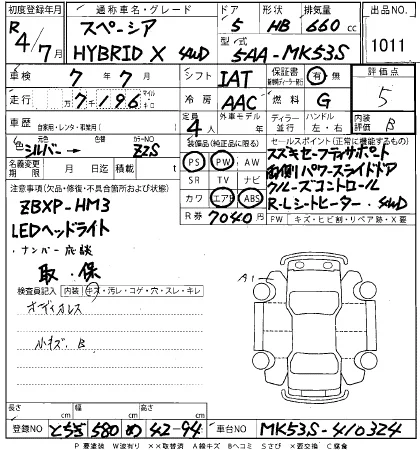 初度登録年月 通称車名・グレード ドア 形状 排気量 出品NO
R4年/7月 スペーシア 5 HB 660cc
HYBRID X 4WD 型式 5AA-MK53S 1011
車検 7年7月 シフト IAT 保証書 有・無 評価点
走行 7千196 マイル キロ 冷房 AAC 燃料 G 5
車歴 自家用・レンタ・営業用( ) 定員 4人 外車モデル ディーラー 並行 ハンドル 左・右 内装評価 B
色 シルバー→ 元色 替 カラーNO ZZS
装備品(純正品に限る) セールスポイント(正常に機能するもの)
名義変更期限 月 日 積載量 t
PS PW AW
SR TV ナビ
カワ エアB ABS
R券 7040円
スズキセーフティサポート
両側パワースライドドア
クルーズコントロール
R-Lシートヒーター・4WD
注意事項(欠品・修復・不具合箇所および状態)
ZBXP-HM3
LEDヘッドライト
ナンバー応談
取・保
PW キズ・ヒビ割・リペア跡・X要
検査員記入 内装 キズ・汚レ・コゲ・穴・スレ・キレ
オーディオレス
小キズ. B
A1
長さ cm 幅 cm 高さ cm
登録NO とちぎ 580 め 42-94 車台NO MK53S-410324
P要塗装 W波有り ××取替済 A線キズ Bヘコミ Sさび ×要交換 C腐食